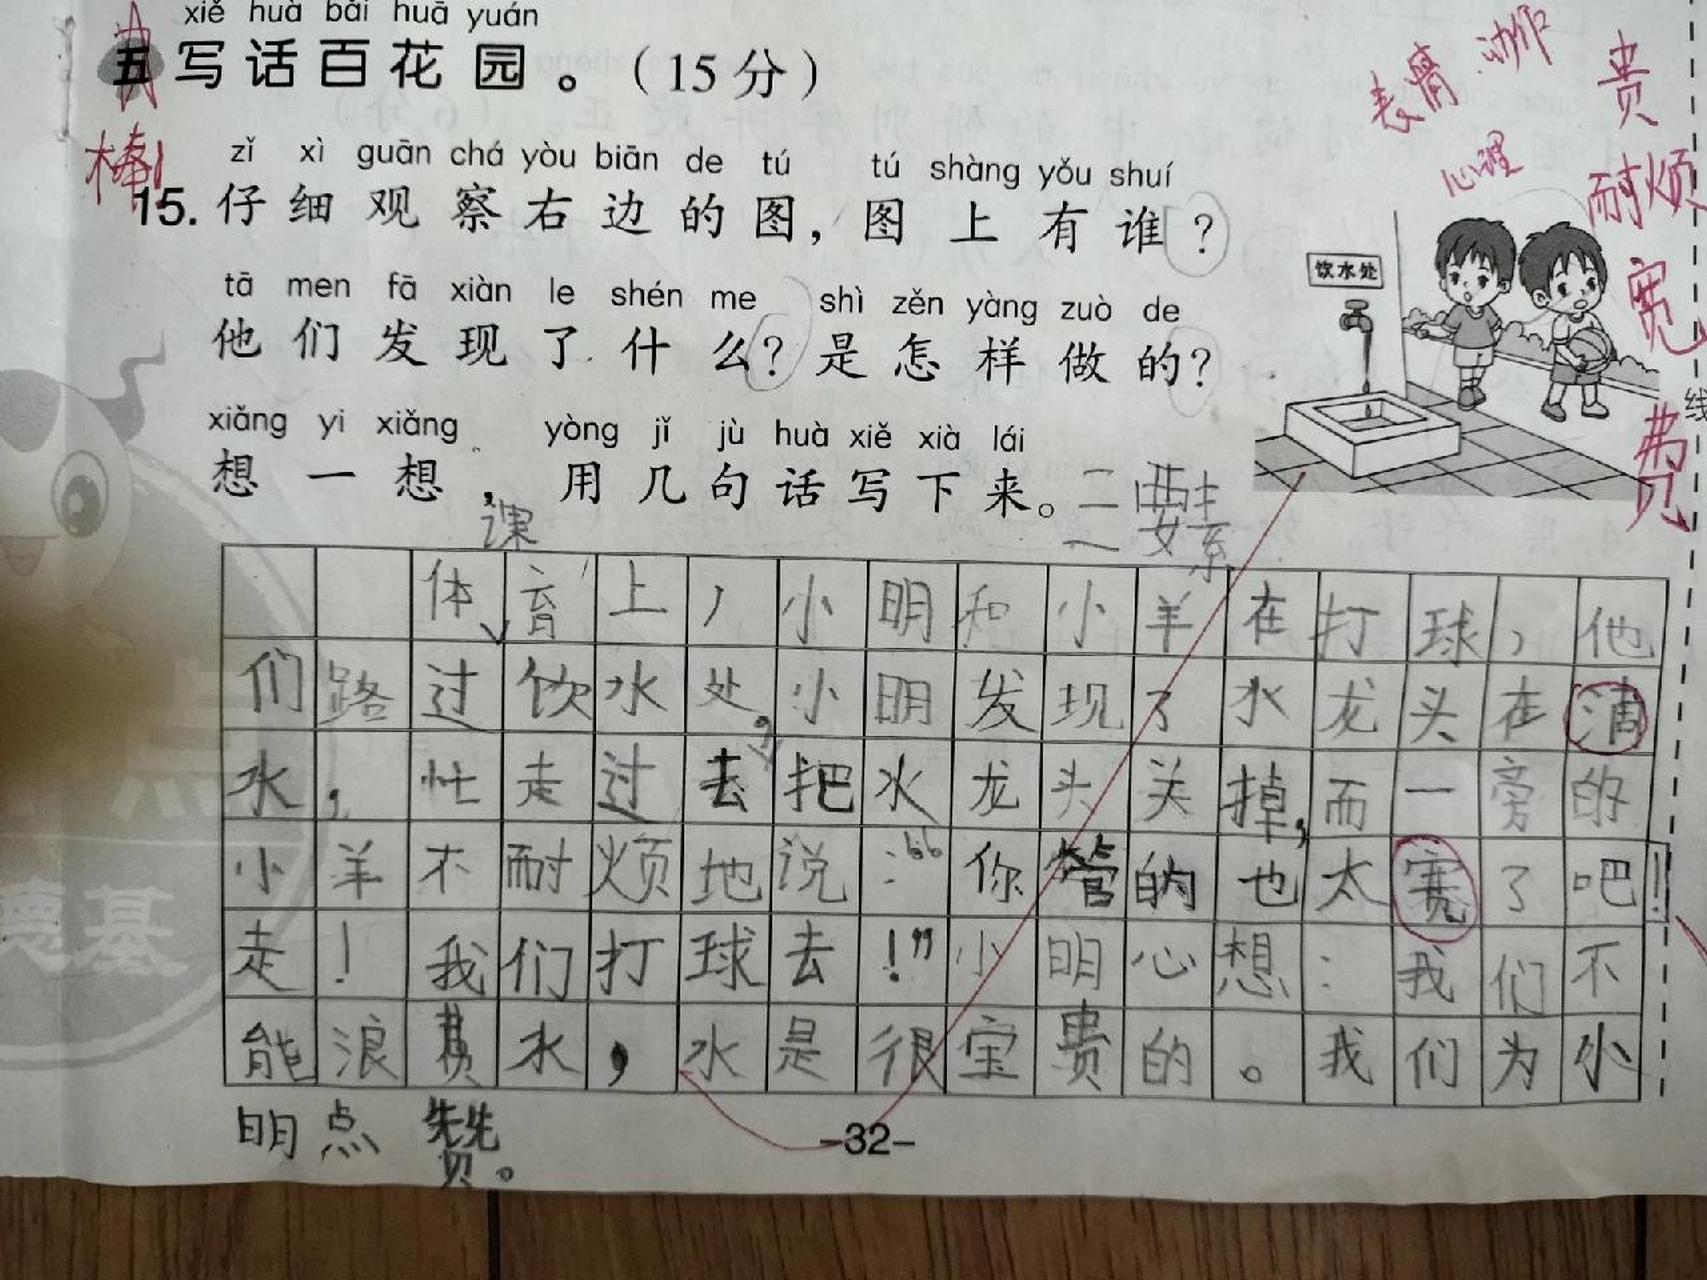 xiě huà bǎi huā yuán
五 写话百花园。(15分)
棒!
表情 动作 贵
心理 耐烦
宽
费
zǐ xì guān chá yòu biān de tú tú shàng yǒu shuí
15. 仔细观察右边的图,图上有谁?
饮水处
tā men fā xiàn le shén me shì zěn yàng zuò de
他们发现了什么?是怎样做的?
线
xiǎng yi xiǎng yòng jǐ jù huà xiě xià lái
想一想,用几句话写下来。
二要素
课
体育上,小明和小羊在打球,他
们路过饮水处,小明发现了水龙头在滴
水,忙走过去,把水龙头关掉,而一旁的
小羊不耐烦地说:“你管的也太宽了吧!
走!我们打球去!”小明心想:我们不
能浪费水,水是很宝贵的。我们为小
明点赞。
-32-
点
德基